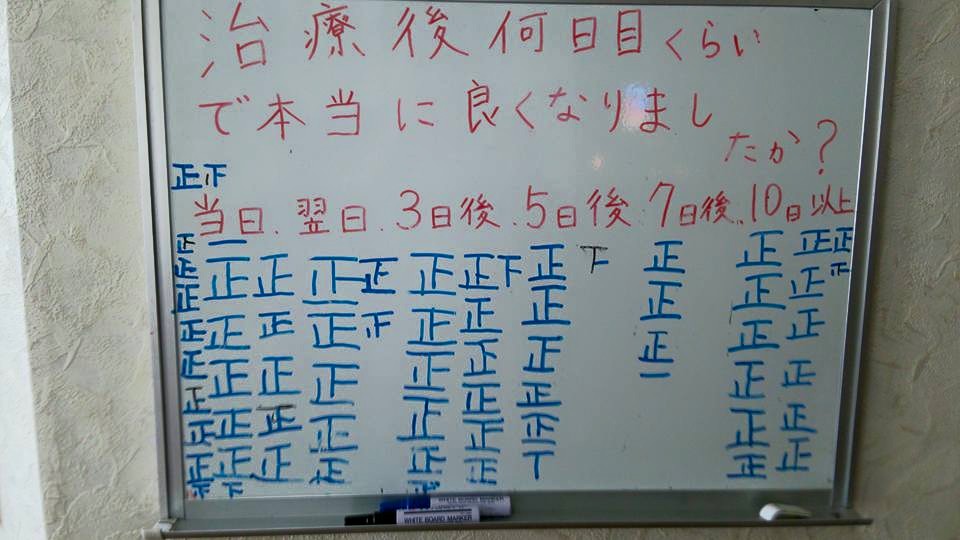 治療後何日目くらい
で本当に良くなりまし
たか？
正下
当日.翌日.3日後.5日後.7日後.10日以上
正 一 正 正 正 正 正 正 下 正 下 正 正 正 正
正 正 正 正 正 正 正 正 正 正 正 正
正 正 正 正 正 正 正 正 正 正
正 正 正 正 正 正 正 一 正 正
正 正 正 正 正 正 正 正 正
正 正 正 正 正 正 丁 正 正
WHITE BOARD MARKER
WHITE BOARD MARKER